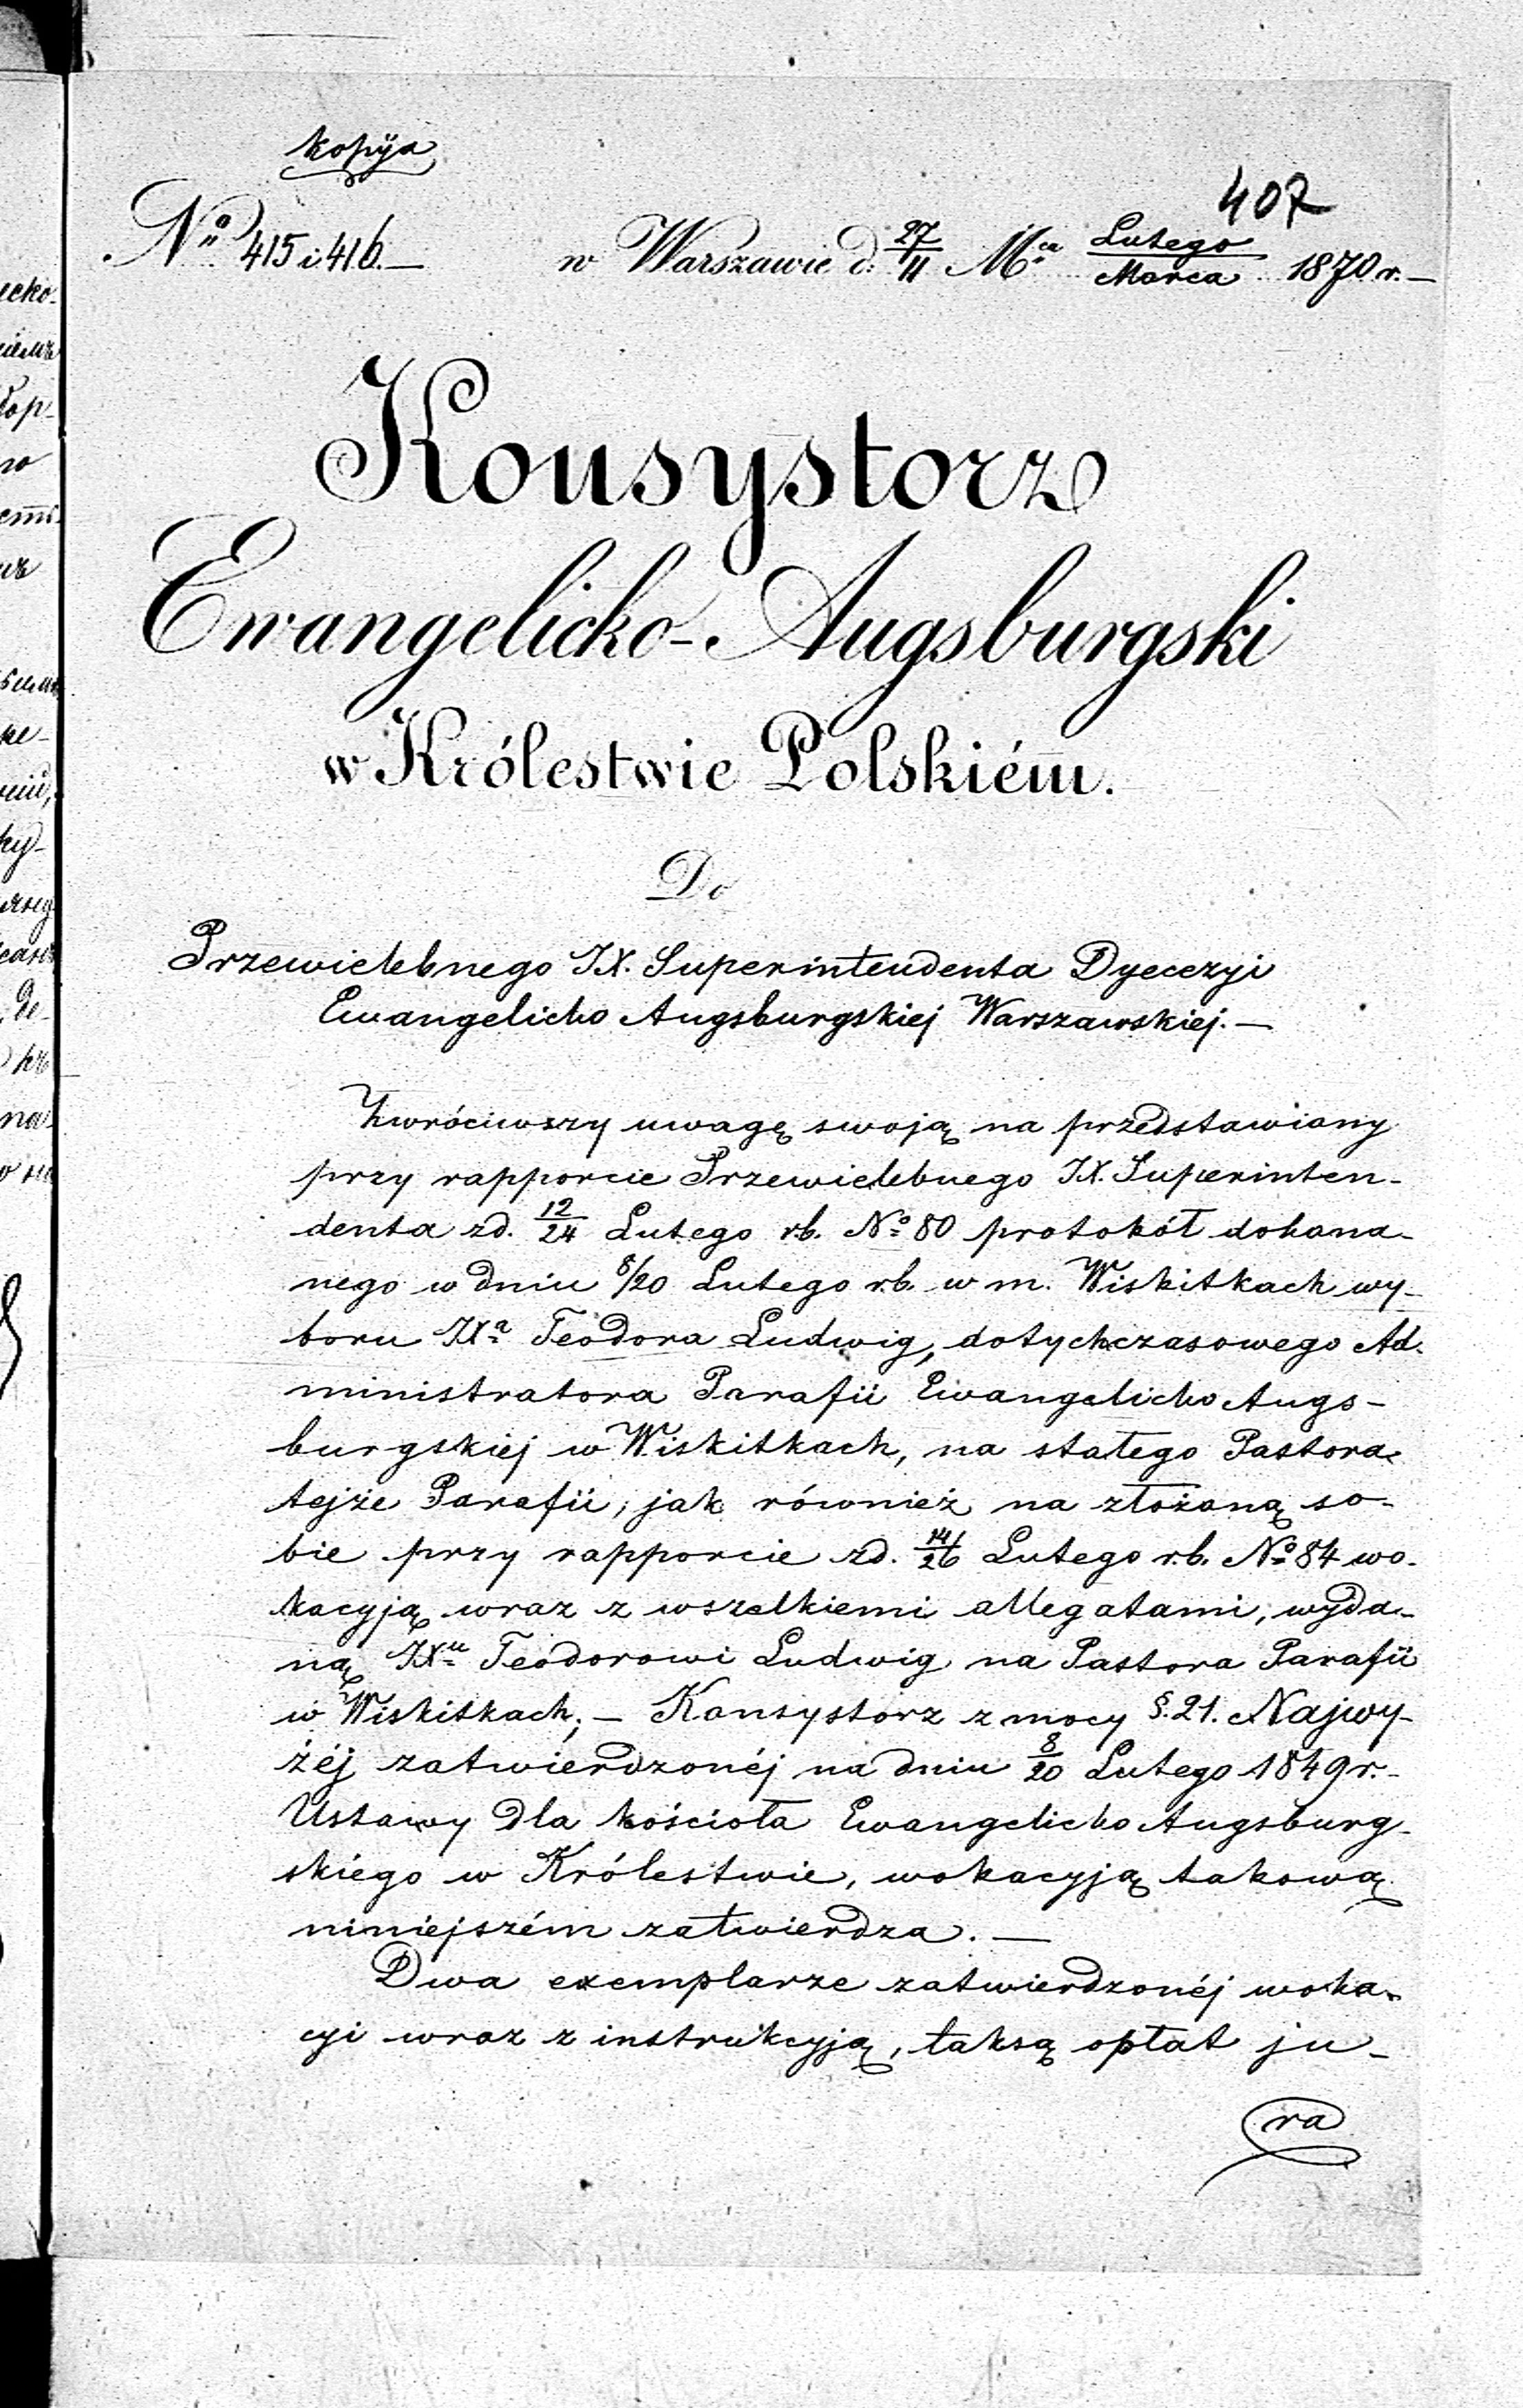 kopija
407
No 415 i 416.—
w Warszawie d. 27/11 Mca Lutego/Marca 1870 r.—
Konsystorz
Ewangelicko-Augsburgski
w Królestwie Polskiém.
Do
Przewielebnego JX. Superintendenta Dyecezyi
Ewangelicko Augsburgskiej Warszawskiej.—
Zwróciwszy uwagę swoją na przedstawiony
przy rapporcie Przewielebnego JX. Superinten-
denta z d. 12/24 Lutego r.b. No 80 protokół dokona-
nego w dniu 8/20 Lutego r.b. w m. Wiskitkach wy-
boru JXa Teodora Ludwig, dotychczasowego Ad-
ministratora Parafii Ewangelicko Augs-
burgskiej w Wiskitkach, na stałego Pastora
tejże Parafii, jak również na złożoną so-
bie przy rapporcie z d. 14/26 Lutego r.b. No 84 wo-
kacyją wraz z wszelkiemi allegatami, wyda-
ną JXu Teodorowi Ludwig na Pastora Parafii
w Wiskitkach; — Konsystorz z mocy §. 21. Najwy-
żéj zatwierdzonéj na dniu 8/20 Lutego 1849 r.-
Ustawy dla kościoła Ewangelicko Augsburg-
skiego w Królestwie, wokacyją takową
niniejszém zatwierdza. —
Dwa exemplarze zatwierdzonéj woka-
cyi wraz z instrukcyją, taksą opłat ju-
ra